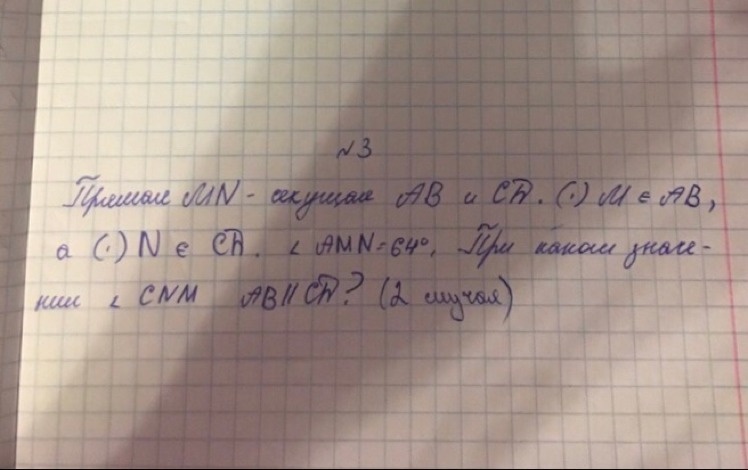 №3
Прямая MN - секущая AB и CD. (·) M ∈ AB,
а (·) N ∈ CD. ∠ AMN = 64°. При каком значе-
нии ∠ CNM AB || CD? (2 случая)